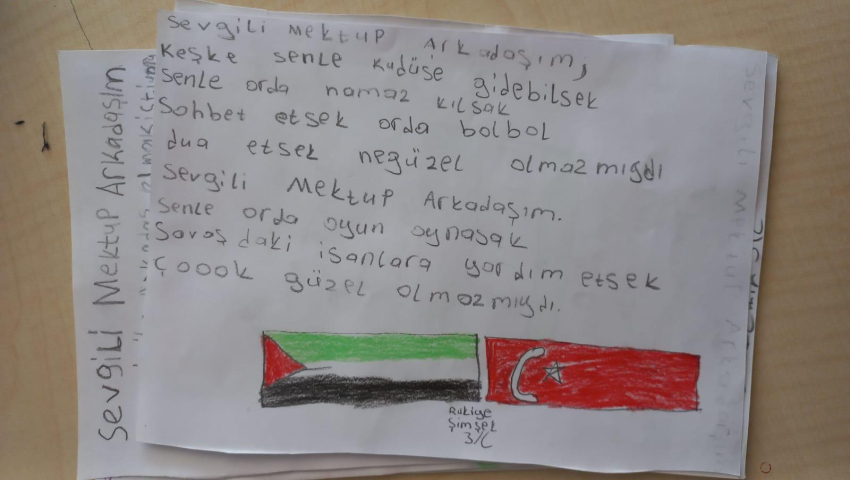 Sevgili Mektup Arkadaşım,
Keşke senle Kudüse gidebilsek
Senle orda namaz kılsak
Sohbet etsek orda bolbol
dua etsek negüzel olmazmıydı
Sevgili Mektup Arkadaşım.
Senle orda oyun oynasak
Savaşdaki isanlara yardım etsek
Çoook güzel olmazmıydı.
Rukiye
Şimşek
3/C
SevgiLi Mektup ARKADAŞIM